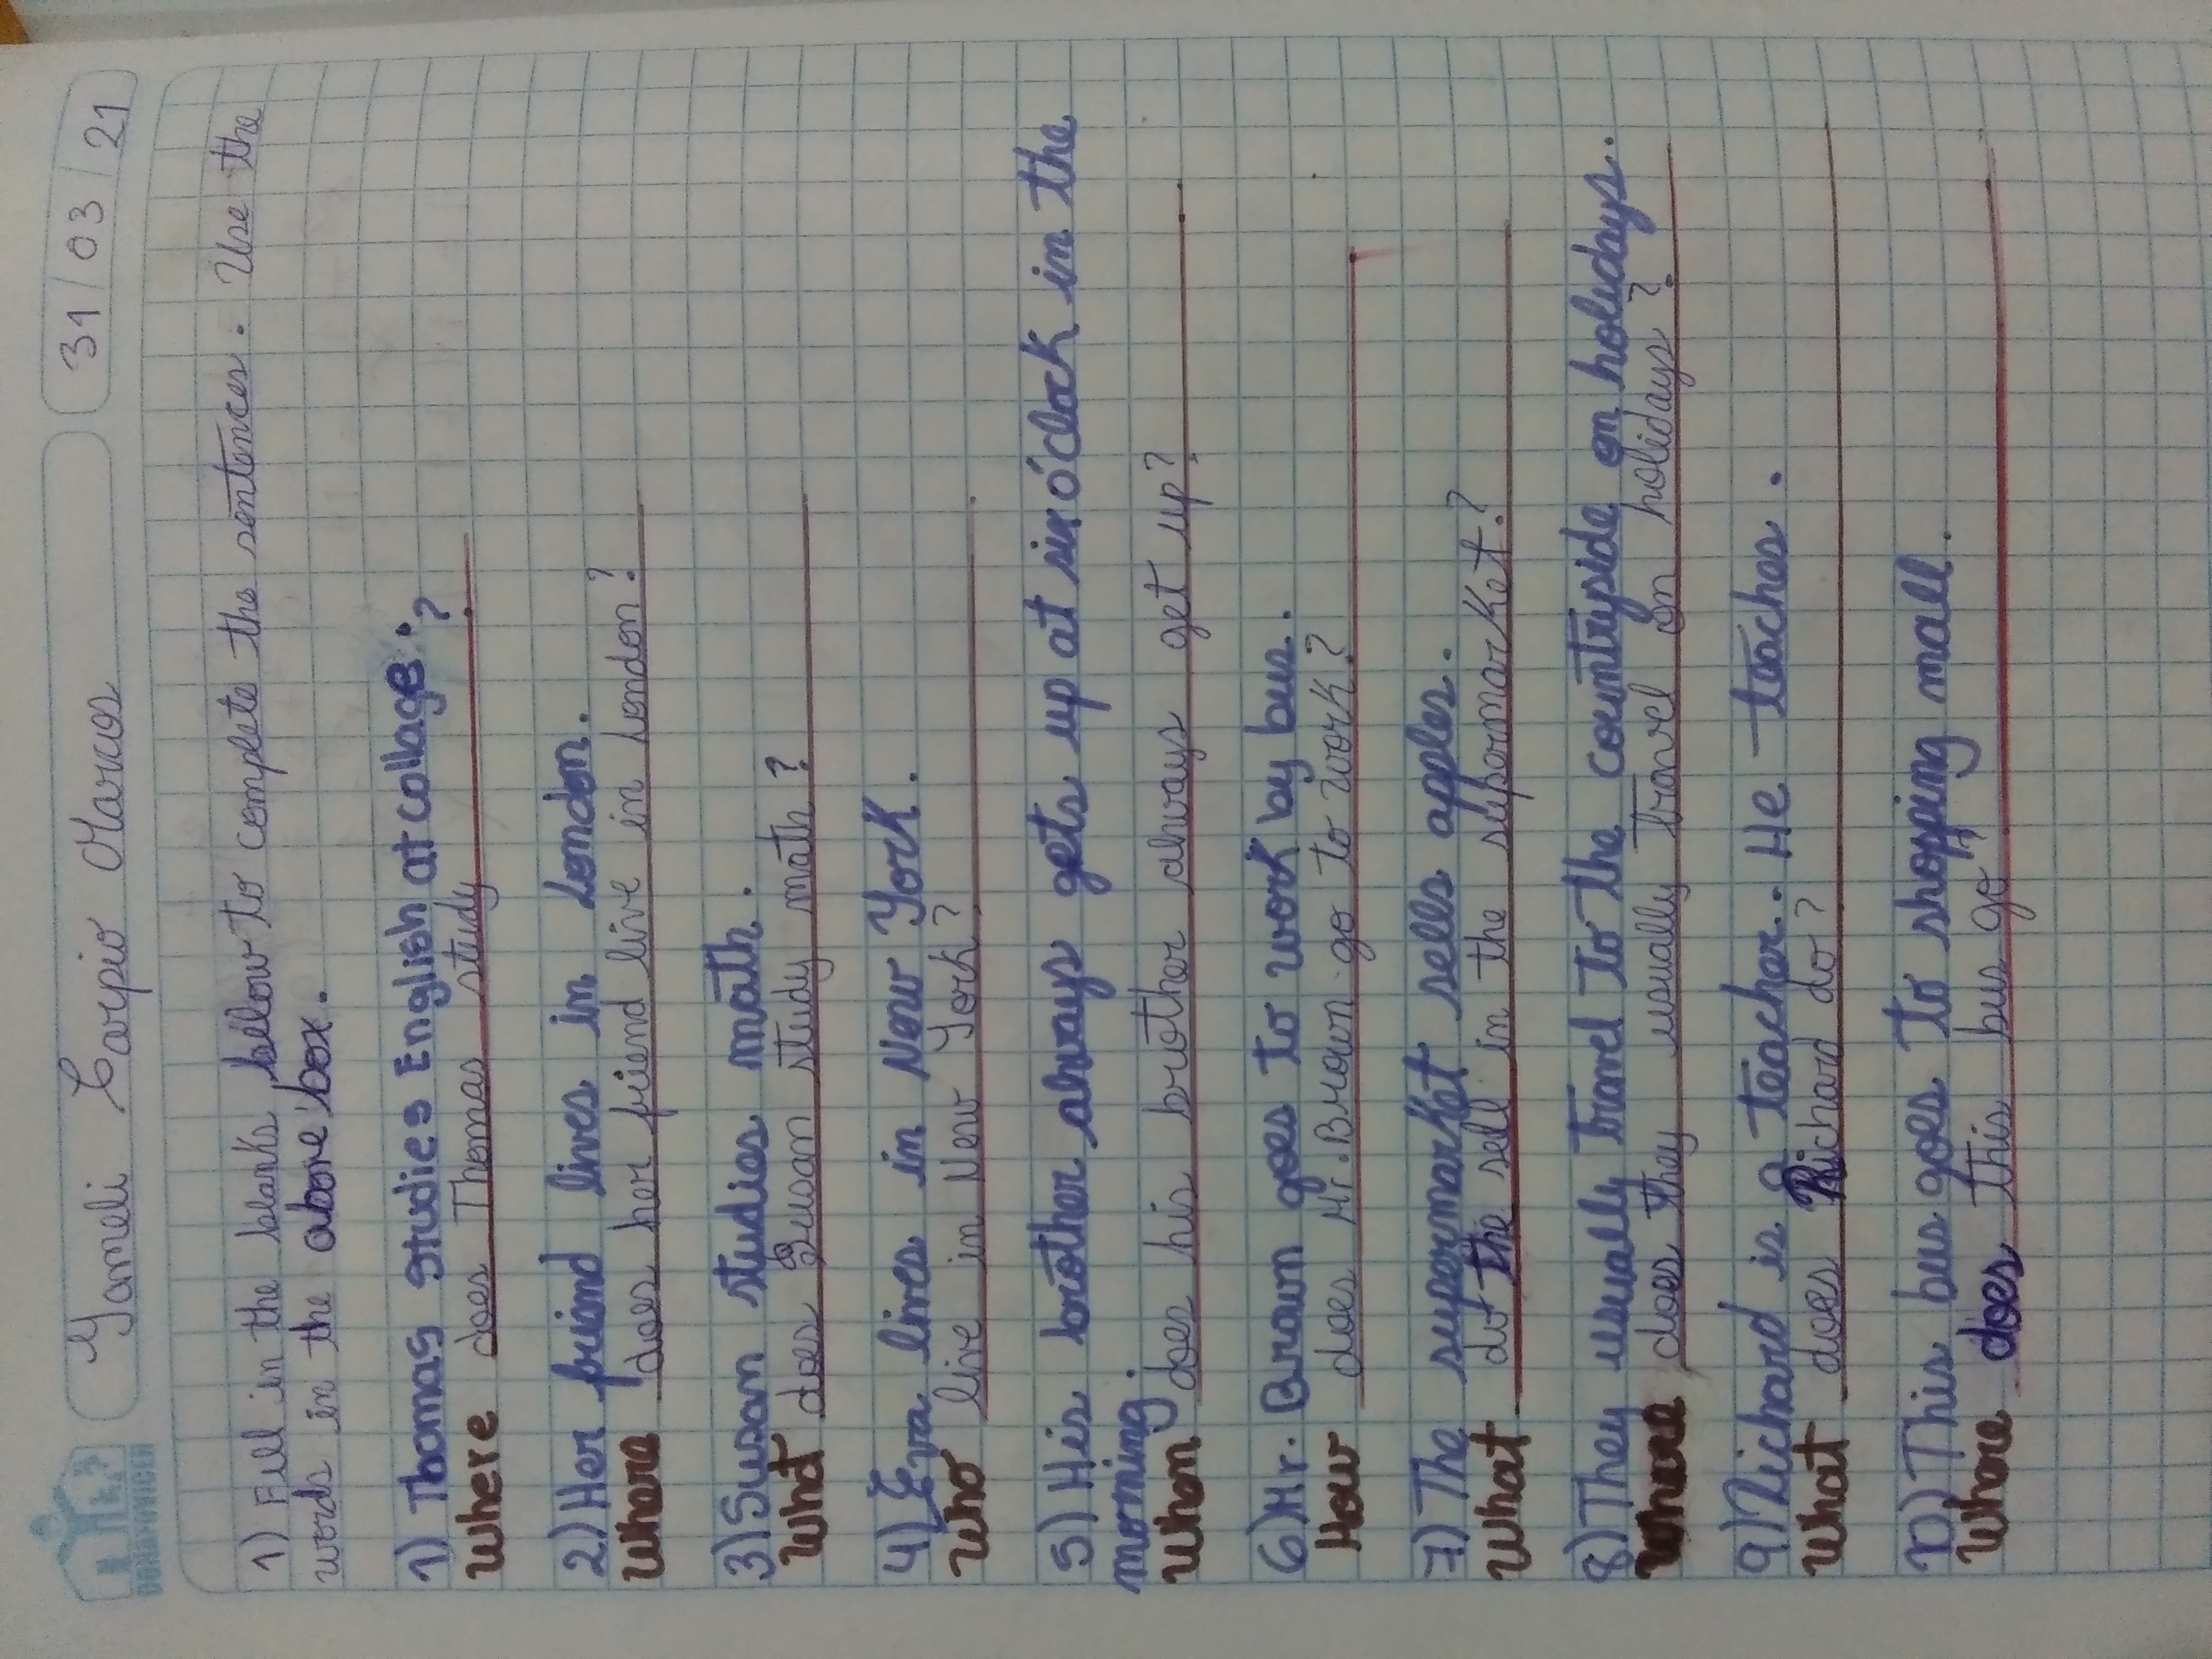 Yameli Carpio Marcos 31/03/21
DONOFRIO
1) Fill in the blanks below to complete the sentences. Use the
words in the above box.
1) Thomas studies English at collage.
Where does Thomas study ?
2) Her friend lives in London.
Where does her friend live in London?
3) Susan studies math.
What does Susan study math ?
4) Eva lives in New York.
Who live in New York?
5) His brother always gets up at six o'clock in the
morning.
When does his brother always get up?
6) Mr. Brown goes to work by bus.
How does Mr. Brown go to work?
7) The supermarket sells apples.
What do the sell in the supermarket?
8) They usually travel to the countryside on holidays.
Where does they usually travel on holidays?
9) Richard is a teacher.. He teaches.
What does Richard do?
10) This bus goes to shopping mall.
Where does this bus go?